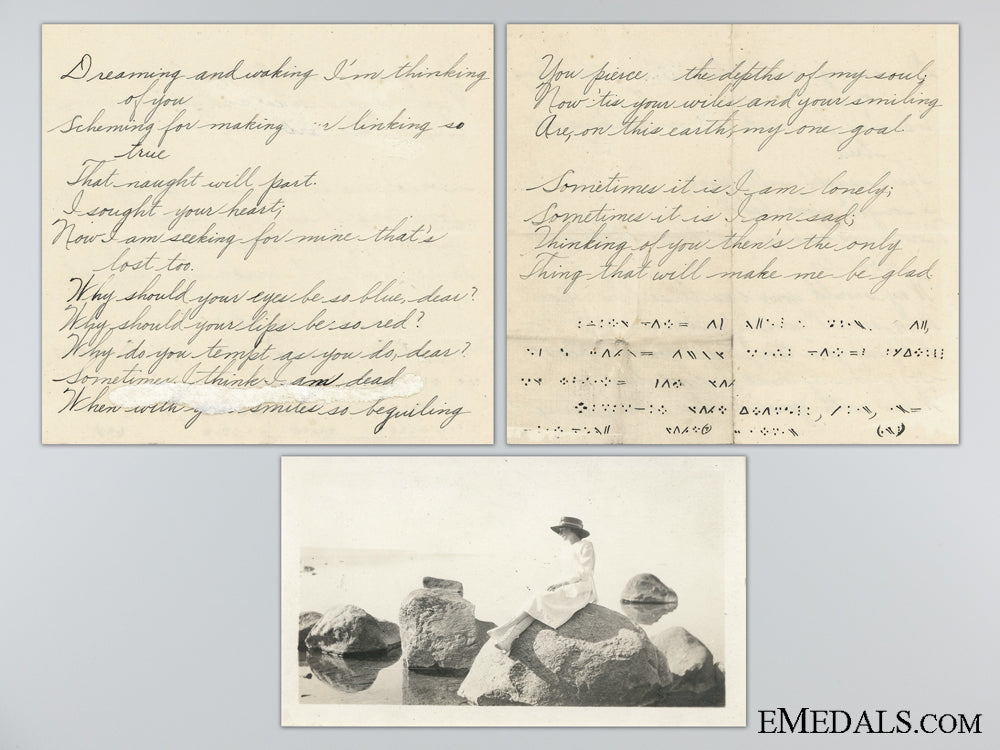 Dreaming and waking I'm thinking
of you
Scheming for making linking so
true
That naught will part.
I sought your heart;
Now I am seeking for mine that's
lost too.
Why should your eyes be so blue, dear?
Why should your lips be so red?
Why do you tempt as you do, dear?
Sometimes I think I am dead
When with smiles so beguiling
You pierce the depths of my soul;
Now 'tis your wiles and your smiling
Are, on this earth, my one goal
Sometimes it is I am lonely;
Sometimes it is I am sad;
Thinking of you then's the only
Thing that will make me be glad.
EMEDALS.COM